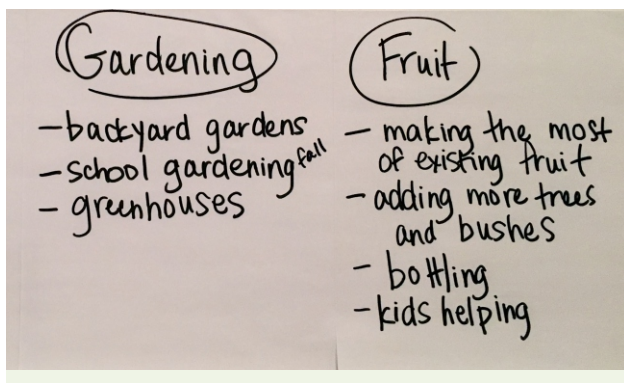 Gardening
- backyard gardens
- school gardening fall
- greenhouses
Fruit
- making the most
of existing fruit
- adding more trees
and bushes
- bottling
- kids helping